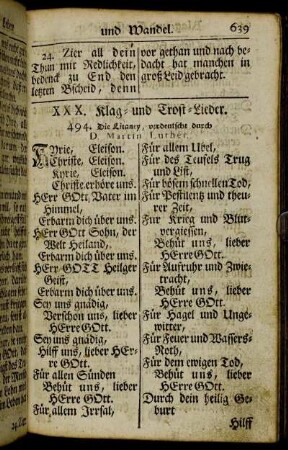 und Wandel. 639
24. Zier all dein
Thun mit Redlichkeit,
bedenck zu End den
letzten Bscheid, denn
vor gethan und nach be-
dacht hat manchen in
groß Leid gebracht.
XXX. Klag- und Trost-Lieder.
494. Die Litaney, verdeutscht durch
D. Martin Luther.
KYrie, Eleison.
Christe, Eleison.
Kyrie, Eleison.
Christe erhöre uns.
HErr GOtt, Vater im
Himmel,
Erbarm dich über uns.
HErr GOtt Sohn, der
Welt Heiland,
Erbarm dich über uns.
HErr GOTT Heilger
Geist,
Erbarm dich über uns.
Sey uns gnädig,
Verschon uns, lieber
HErre GOtt.
Sey uns gnädig,
Hilff uns, lieber HEr-
re GOtt.
Für allen Sünden
Behüt uns, lieber
HErre GOtt.
Für allem Irrsal,
Für allem Ubel,
Für des Teufels Trug
und List,
Für bösem schnellen Tod,
Für Pestilentz und theu-
rer Zeit,
Für Krieg und Blut-
vergiessen,
Behüt uns, lieber
HErre GOtt.
Für Aufruhr und Zwie-
tracht,
Behüt uns, lieber
HErre GOtt.
Für Hagel und Unge-
witter,
Für Feuer und Wassers-
Noth,
Für dem ewigen Tod,
Behüt uns, lieber
HErre GOtt.
Durch dein heilig Ge-
burt
Hilff